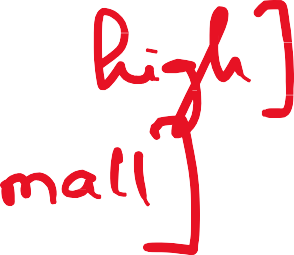 high]
mall]